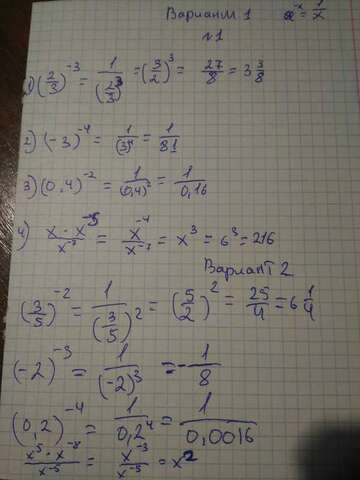 Вариант 1 x^{-x} = \frac{1}{x}
№1
1) (\frac{2}{3})^{-3} = \frac{1}{(\frac{2}{3})^3} = (\frac{3}{2})^3 = \frac{27}{8} = 3\frac{3}{8}
2) (-3)^{-4} = \frac{1}{(3)^4} = \frac{1}{81}
3) (0,4)^{-2} = \frac{1}{(0,4)^2} = \frac{1}{0,16}
4) \frac{x \cdot x^{-5}}{x^{-7}} = \frac{x^{-4}}{x^{-7}} = x^3 = 6^3 = 216
Вариант 2
(\frac{3}{5})^{-2} = \frac{1}{(\frac{3}{5})^2} = (\frac{5}{2})^2 = \frac{25}{4} = 6\frac{1}{4}
(-2)^{-3} = \frac{1}{(-2)^3} = -\frac{1}{8}
(0,2)^{-4} = \frac{1}{0,2^4} = \frac{1}{0,0016}
\frac{x^5 \cdot x^{-8}}{x^{-5}} = \frac{x^{-3}}{x^{-5}} = x^2